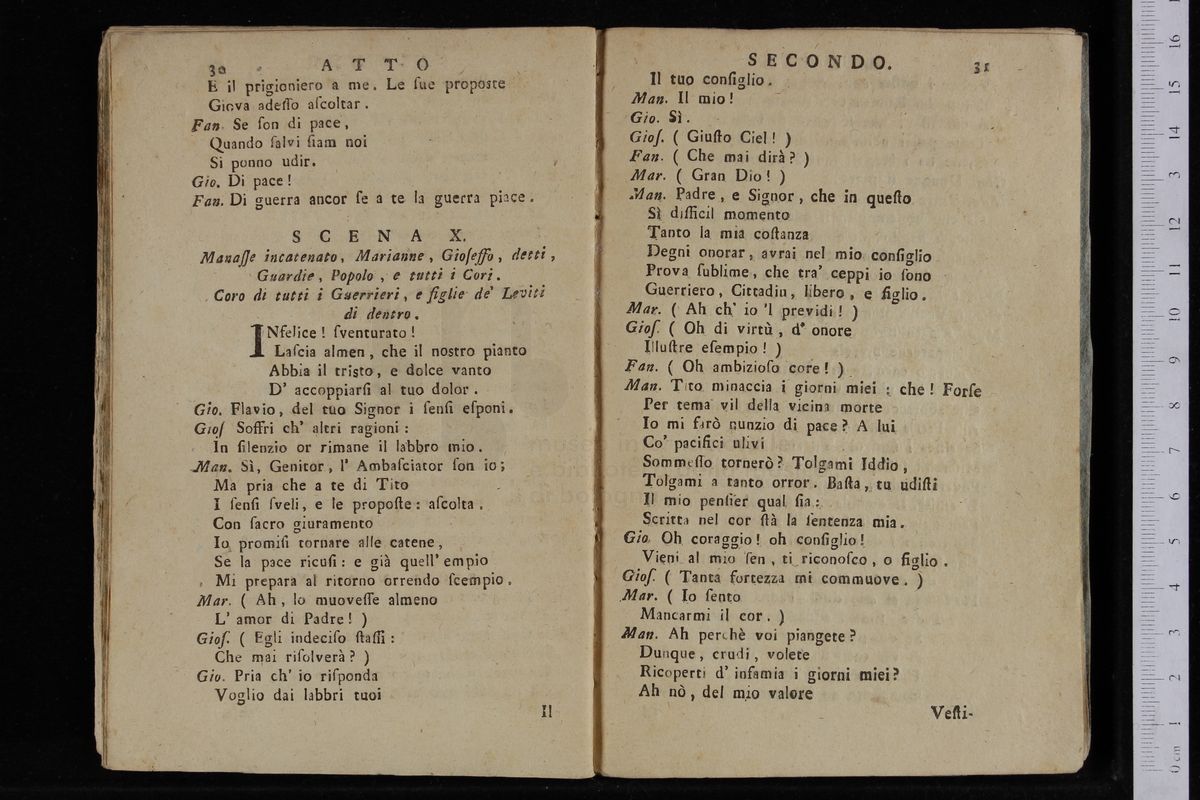 30 ATTO
E il prigioniero a me. Le ſue propoſte
Giova adeſſo aſcoltar.
Fan. Se ſon di pace,
Quando ſalvi ſiam noi
Si ponno udir.
Gio. Di pace!
Fan. Di guerra ancor ſe a te la guerra piace.
SCENA X.
Manaſſe incatenato, Marianne, Gioſeffo, detti,
Guardie, Popolo, e tutti i Cori.
Coro di tutti i Guerrieri, e figlie de' Leviti
di dentro.
INfelice! ſventurato!
Laſcia almen, che il noſtro pianto
Abbia il triſto, e dolce vanto
D' accoppiarſi al tuo dolor.
Gio. Flavio, del tuo Signor i ſenſi eſponi.
Gioſ Soffri ch' altri ragioni:
In ſilenzio or rimane il labbro mio.
Man. Sì, Genitor, l' Ambaſciator ſon io;
Ma pria che a te di Tito
I ſenſi ſveli, e le propoſte: aſcolta.
Con ſacro giuramento
Io promiſi tornare alle catene,
Se la pace ricuſi: e già quell' empio
Mi prepara al ritorno orrendo ſcempio.
Mar. ( Ah, lo moveſſe almeno
L' amor di Padre! )
Gioſ. ( Egli indeciſo ſtaſſi:
Che mai riſolverà? )
Gio. Pria ch' io riſponda
Voglio dai labbri tuoi
Il
SECONDO. 31
Il tuo conſiglio.
Man. Il mio!
Gio. Sì.
Gioſ. ( Giuſto Ciel! )
Fan. ( Che mai dirà? )
Mar. ( Gran Dio! )
Man. Padre, e Signor, che in queſto
Sì difficil momento
Tanto la mia coſtanza
Degni onorar, avrai nel mio conſiglio
Prova ſublime, che tra' ceppi io ſono
Guerriero, Cittadin, libero, e figlio.
Mar. ( Ah ch' io 'l previdi! )
Gioſ. ( Oh di virtù, d' onore
Illuſtre eſempio! )
Fan. ( Oh ambizioſo core! )
Man. Tito minaccia i giorni miei: che! Forſe
Per tema vil della vicina morte
Io mi farò nunzio di pace? A lui
Co' pacifici ulivi
Sommeſſo tornerò? Tolgami Iddio,
Tolgami a tanto orror. Baſta, tu udiſti
Il mio penſier qual ſia:
Scritta nel cor ſtà la ſentenza mia.
Gio. Oh coraggio! oh conſiglio!
Vieni al mio ſen, ti riconoſco, o figlio.
Gioſ. ( Tanta fortezza mi commuove. )
Mar. ( Io ſento
Mancarmi il cor. )
Man. Ah perchè voi piangete?
Dunque, crudi, volete
Ricoperti d' infamia i giorni miei?
Ah nò, del mio valore
Veſti-